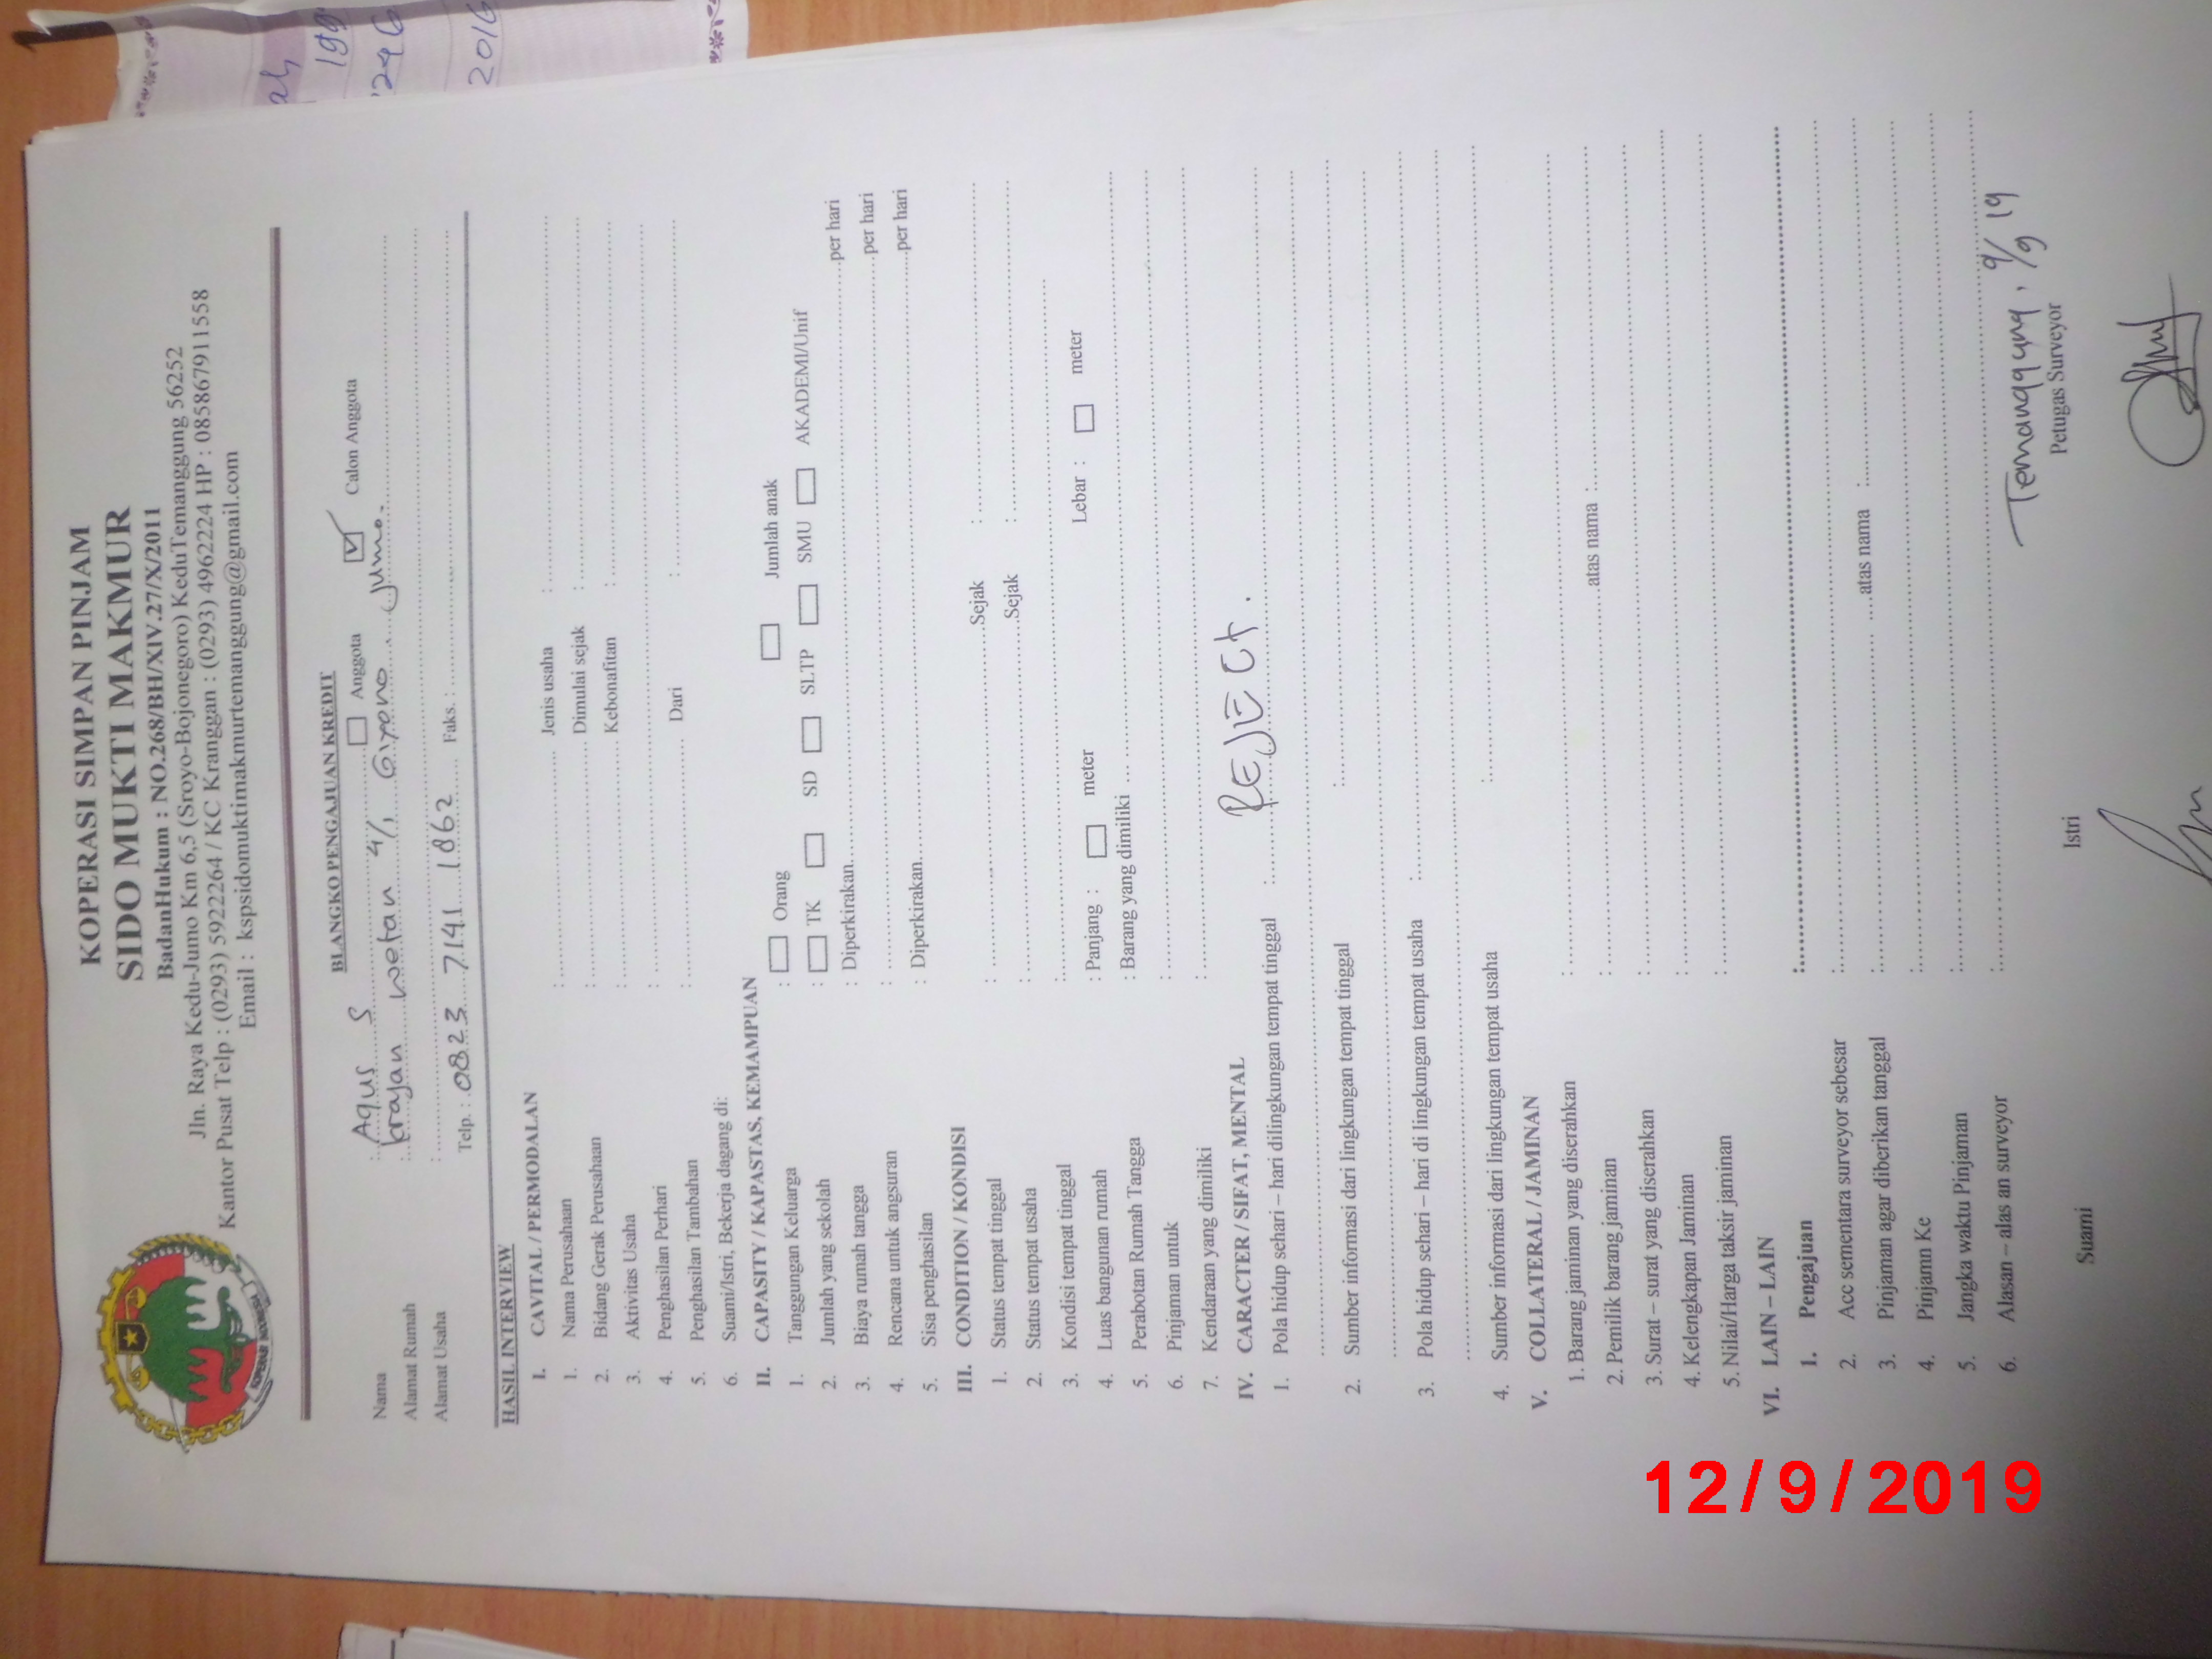 KOPERASI SIMPAN PINJAM
SIDO MUKTI MAKMUR
BadanHukum : NO.268/BH/XIV.27/X/2011
Jln. Raya Kedu-Jumo Km 6,5 (Sroyo-Bojonegoro) KeduTemanggung 56252
Kantor Pusat Telp : (0293) 5922264 / KC Kranggan : (0293) 4962224 HP : 085867911558
Email : kspsidomuktimakmurtemanggung@gmail.com
KOPERASI INDONESIA
BLANGKO PENGAJUAN KREDIT
Nama : Agus S Anggota Calon Anggota
Alamat Rumah : krajan wetan 4/1 Giyono. Jumo.
Alamat Usaha :
Telp. : 0823 7141 1862 Faks. :
HASIL INTERVIEW
I. CAVITAL / PERMODALAN
1. Nama Perusahaan : Jenis usaha :
2. Bidang Gerak Perusahaan : Dimulai sejak :
3. Aktivitas Usaha : Kebonafitan :
4. Penghasilan Perhari :
5. Penghasilan Tambahan : Dari :
6. Suami/Istri, Bekerja dagang di:
II. CAPASITY / KAPASTAS, KEMAMPUAN
1. Tanggungan Keluarga : Orang Jumlah anak
2. Jumlah yang sekolah : TK SD SLTP SMU AKADEMI/Unif
3. Biaya rumah tangga : Diperkirakan per hari
4. Rencana untuk angsuran : per hari
5. Sisa penghasilan : Diperkirakan per hari
III. CONDITION / KONDISI
1. Status tempat tinggal : Sejak :
2. Status tempat usaha : Sejak :
3. Kondisi tempat tinggal :
4. Luas bangunan rumah : Panjang : meter Lebar : meter
5. Perabotan Rumah Tangga : Barang yang dimiliki
6. Pinjaman untuk :
7. Kendaraan yang dimiliki :
IV. CARACTER / SIFAT, MENTAL
REJECT.
1. Pola hidup sehari – hari dilingkungan tempat tinggal :
2. Sumber informasi dari lingkungan tempat tinggal :
3. Pola hidup sehari – hari di lingkungan tempat usaha :
4. Sumber informasi dari lingkungan tempat usaha :
V. COLLATERAL / JAMINAN
1. Barang jaminan yang diserahkan :
2. Pemilik barang jaminan : atas nama :
3. Surat – surat yang diserahkan :
4. Kelengkapan Jaminan :
5. Nilai/Harga taksir jaminan :
VI. LAIN – LAIN
1. Pengajuan :
2. Acc sementara surveyor sebesar :
3. Pinjaman agar diberikan tanggal : atas nama :
4. Pinjaman Ke :
5. Jangka waktu Pinjaman :
6. Alasan – alas an surveyor :
Temanggung, 9/9 19
Suami Istri Petugas Surveyor
12/9/2019
ah
199
296
2016